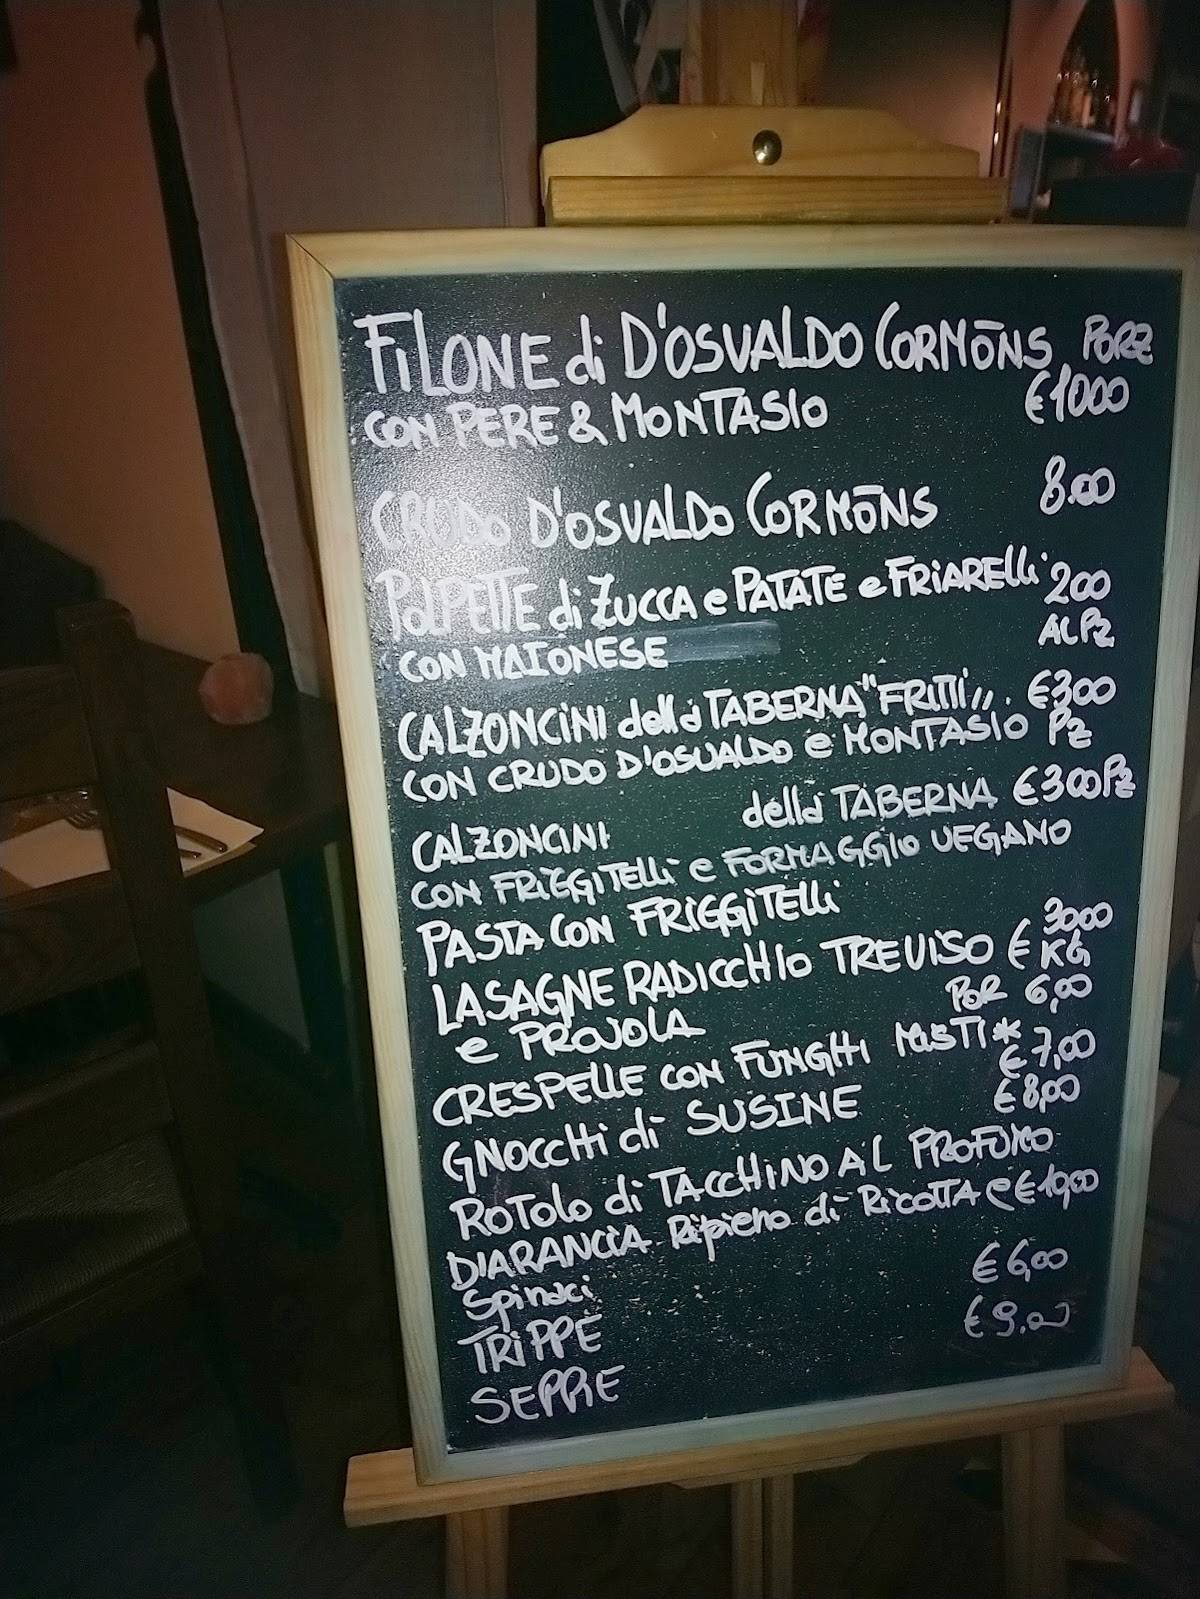 FILONE di D'OSVALDO CORMŌNS PORZ
CON PERE & MONTASIO €1000
CRUDO D'OSVALDO CORMŌNS 8.00
POLPETTE di ZUCCA e PATATE e FRIARELLI 200
CON MAIONESE AL PZ
CALZONCINI della TABERNA "FRITTI,, . €300
CON CRUDO D'OSVALDO e MONTASIO PZ
CALZONCINI della TABERNA €300 PZ
CON FRIGGITELLI e FORMAGGIO VEGANO
PASTA CON FRIGGITELLI
LASAGNE RADICCHIO TREVISO € 3000 KG
e PROVOLA POR 6,00
CRESPELLE CON FUNGHI MISTI* € 7,00
GNOCCHI di SUSINE € 8,00
ROTOLO di TACCHINO AL PROFUMO
DIARANCIA Ripieno di RICOTTA e € 10,00
Spinaci
TRIPPE € 6,00
SEPPIE € 9.00